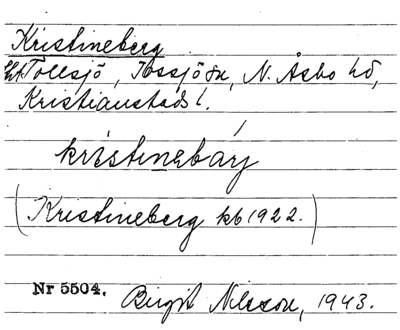 Kristineberg
Tollsjö, Tossjö sn, N. Åsbo hd,
Kristianstads l.
kristinebärj
(Kristineberg kb 1922.)
Nr 5504. Birgit Nilsson, 1943.